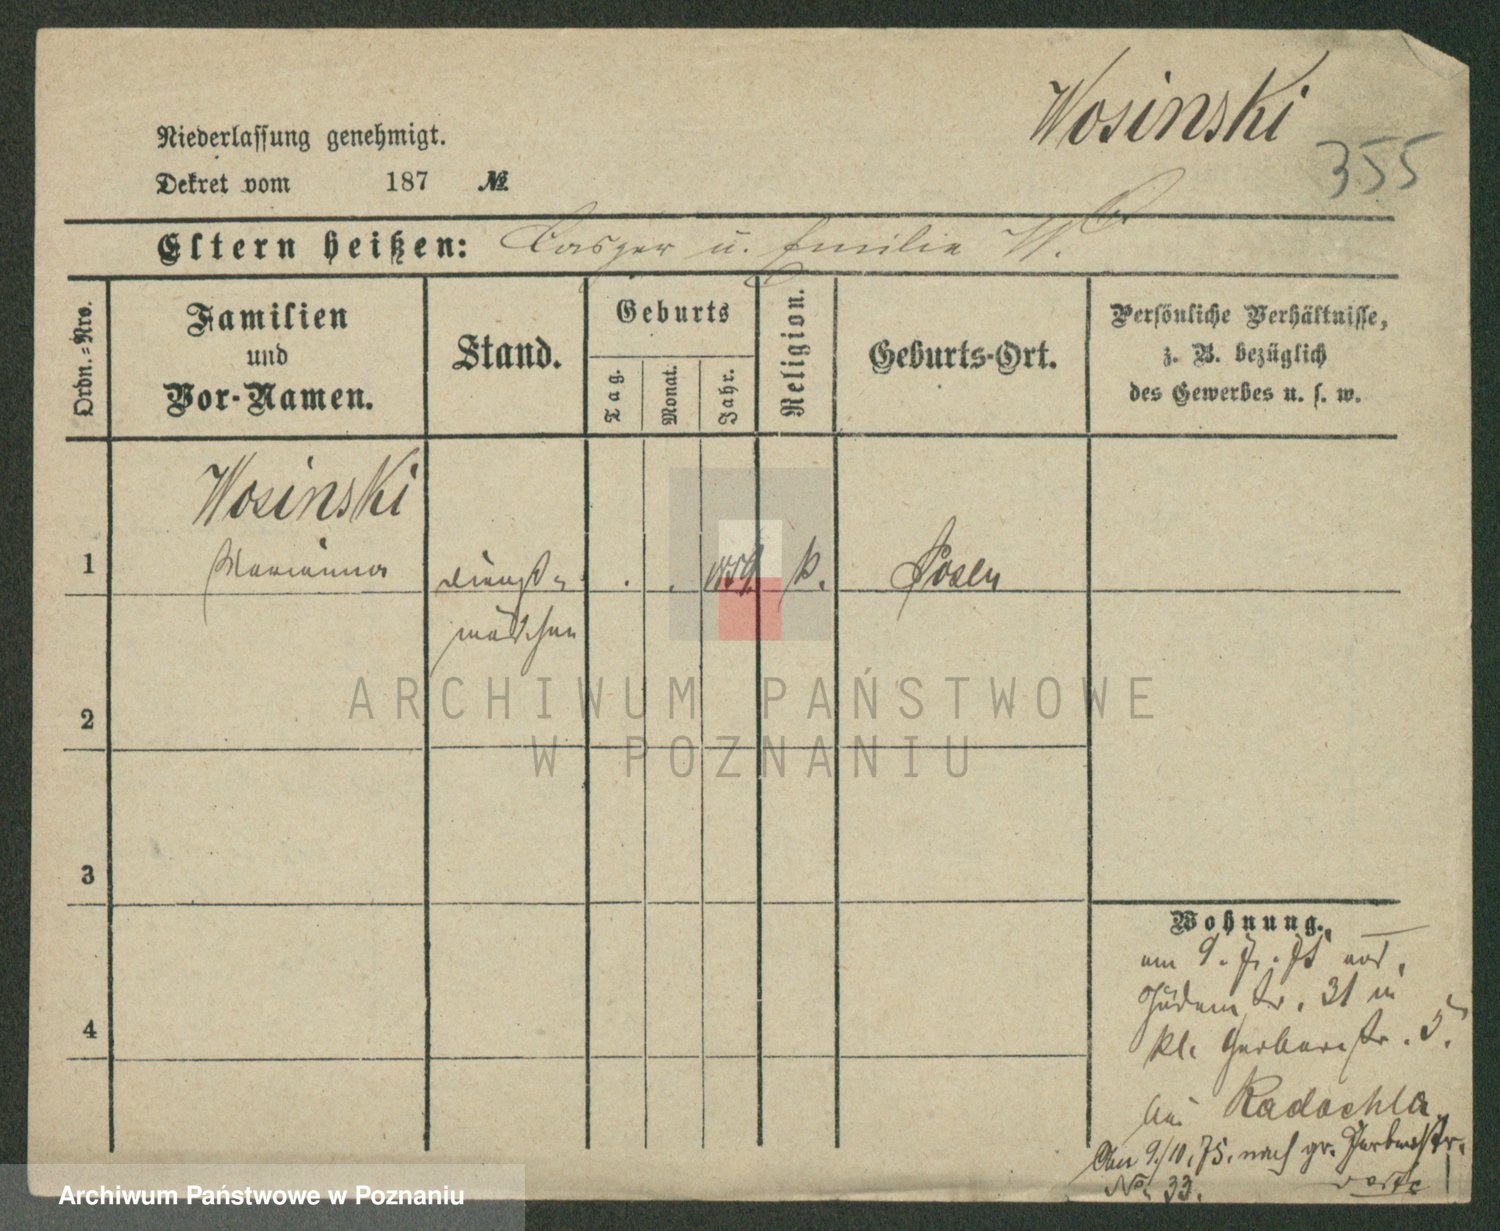 Wosinski
355
Niederlassung genehmigt.
Dekret vom 187 №
Eltern heißen: Casper u. Emilie W.
Ordn.=Nro.
Familien
und
Vor-Namen.
Stand.
Geburts
Tag.
Monat.
Jahr.
Religion.
Geburts-Ort.
Persönliche Verhältnisse,
z. B. bezüglich
des Gewerbes u. s. w.
Wosinski
1 Marianna Dienst= . . 1859. k. Posen
mädchen
ARCHIWUM PAŃSTWOWE
W POZNANIU
2
3
4
Wohnung.
am 9. 7. 75 von
Judenstr. 31 in
kl. Gerberstr. 5.
bei Radochla
Am 9/10. 75. nach gr. Gerberstr.
No. 33.
Archiwum Państwowe w Poznaniu